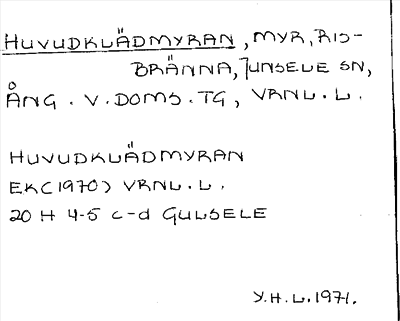 HUVUDKLÄDMYRAN, MYR, RIS-
BRÄNNA, JUNSELE SN,
ÅNG. V. DOMS. TG, VRNL. L.
HUVUDKLÄDMYRAN
EK(1970) VRNL. L.
20 H 4-5 c-d GULSELE
Y.H.L. 1971.